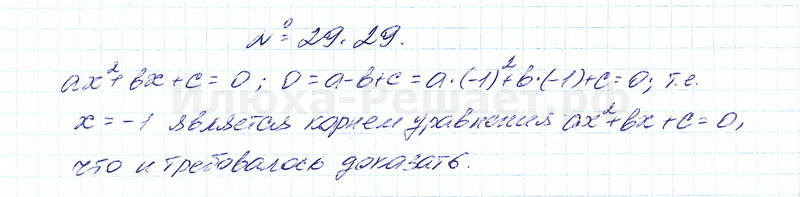 № 29.29.
ax²+bx+c=0; 0=a-b+c=a·(-1)²+b·(-1)+c=0; т.е.
x=-1 является корнем уравнения ax²+bx+c=0,
что и требовалось доказать.
Илюха-Решает.рф